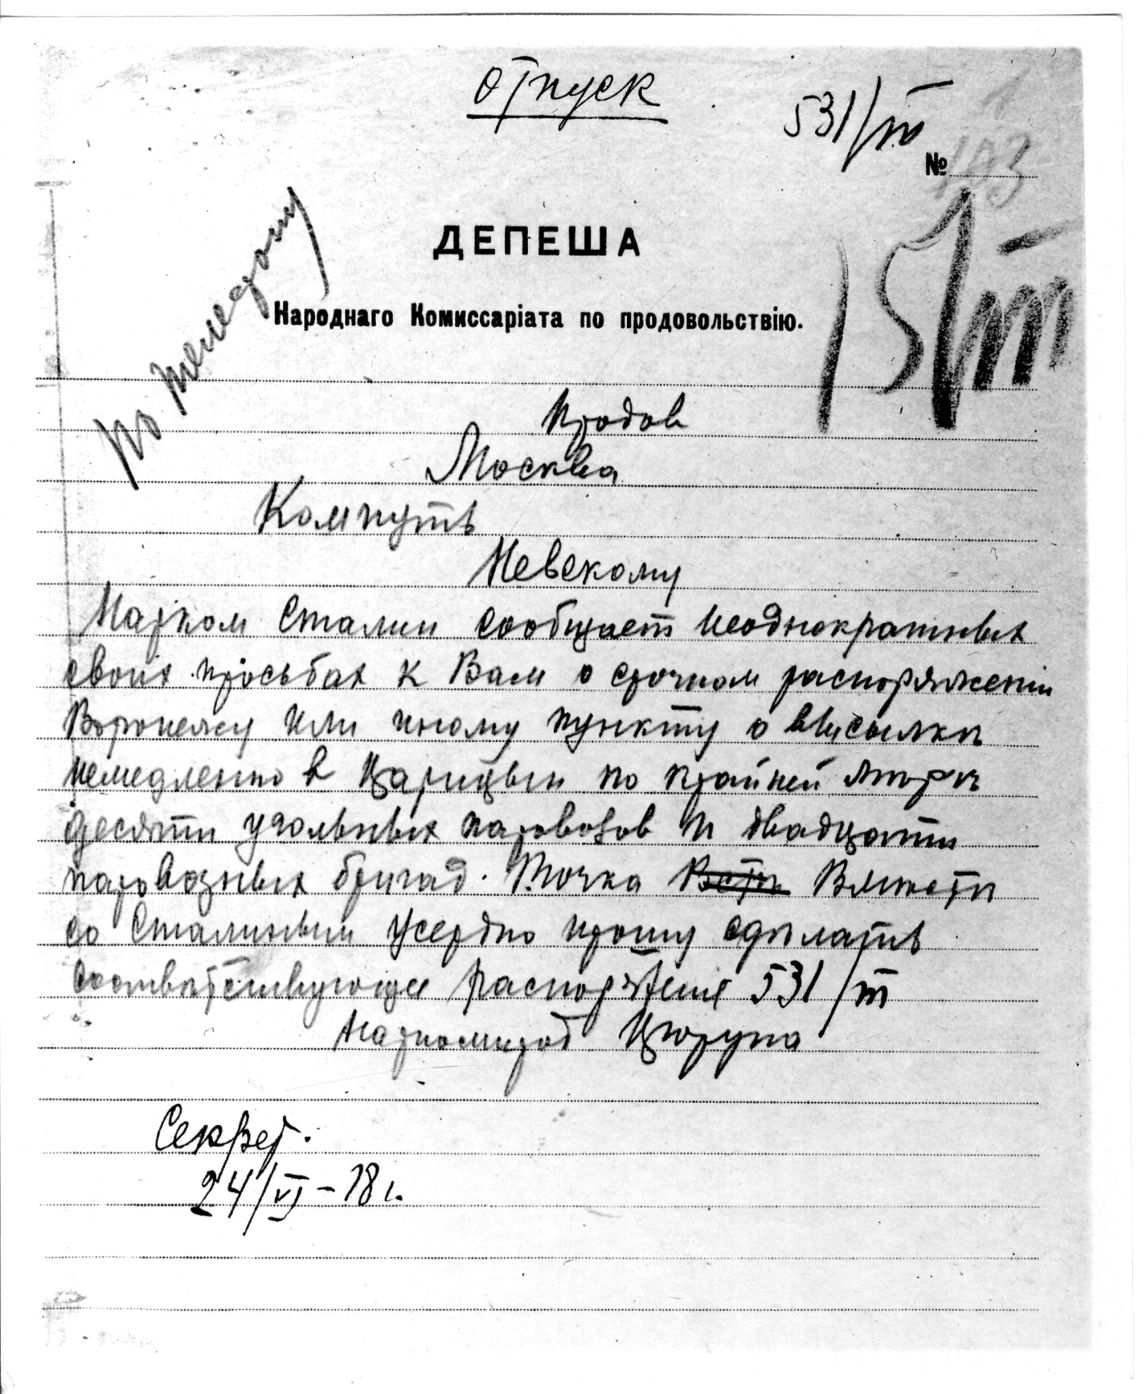 отпуск
531/т
№
ДЕПЕША
Народнаго Комиссаріата по продовольствію.
По телефону
Продов
Москва
Компуть
Невскому
Нарком Сталин сообщает неоднократных
своих просьбах к Вам о срочном распоряжении
Воронежу или иному пункту о высылкѣ
немедленно в Царицын по крайней мѣрѣ
десяти угольных паровозов и двадцати
паровозных бригад. Точка Вмѣстѣ
со Сталиным усердно прошу сдѣлать
соответствующие распоряжения 531/т
Наркомпрод Цюрупа
Секрет.
24/VI-18 г.